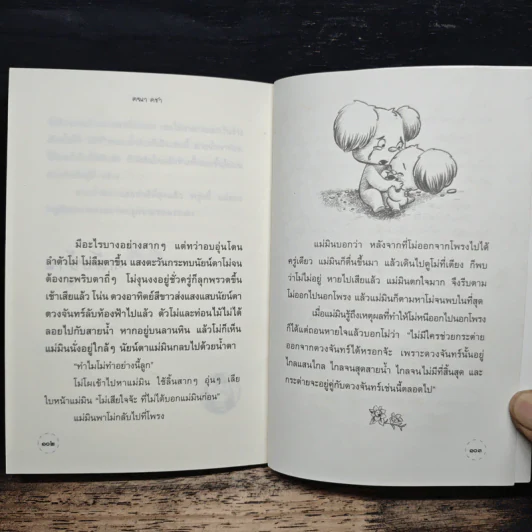 คชา
มีอะไรบางอย่างสากๆ แต่ทว่าอบอุ่นโดน
ลำตัวโม่ โม่ลืมตาขึ้น แสงตะวันกระทบนัยน์ตาโม่จน
ต้องกะพริบตาถี่ๆ โม่งุนงงอยู่ชั่วครู่ก็ลุกพรวดขึ้น
เช้าเสียแล้ว โน่น ดวงอาทิตย์สีขาวส่งแสงแสบนัยน์ตา
ดวงจันทร์ลับท้องฟ้าไปแล้ว ตัวโม่และท่อนไม้ไม่ได้
ลอยไปกับสายน้ำ หากอยู่บนลานหิน แล้วโม่ก็เห็น
แม่มินนั่งอยู่ใกล้ๆ นัยน์ตาแม่มินกลบไปด้วยน้ำตา
“ทำไมโม่ทำอย่างนี้ลูก”
โม่โผเข้าไปหาแม่มิน ใช้ลิ้นสากๆ อุ่นๆ เลีย
ใบหน้าแม่มิน “โม่เสียใจจ้ะ ที่ไม่ได้บอกแม่มินก่อน”
แม่มินพาโม่กลับไปที่โพรง
๑๐๒
แม่มินบอกว่า หลังจากที่โม่ออกจากโพรงไปได้
ครู่เดียว แม่มินก็ตื่นขึ้นมา แล้วเดินไปดูโม่ที่เตียง ก็พบ
ว่าโม่ไม่อยู่ หายไปเสียแล้ว แม่มินตกใจมาก จึงรีบตาม
โม่ออกไปนอกโพรง แล้วแม่มินก็ตามหาโม่จนพบในที่สุด
เมื่อแม่มินรู้ถึงเหตุผลที่ทำให้โม่หนีออกไปนอกโพรง
ก็ได้แต่ถอนหายใจแล้วบอกโม่ว่า “ไม่มีใครช่วยกระต่าย
ออกจากดวงจันทร์ได้หรอกจ้ะ เพราะดวงจันทร์นั้นอยู่
ไกลแสนไกล ไกลจนสุดสายน้ำ ไกลจนไม่มีที่สิ้นสุด และ
กระต่ายจะอยู่คู่กับดวงจันทร์เช่นนี้ตลอดไป”
๑๐๓